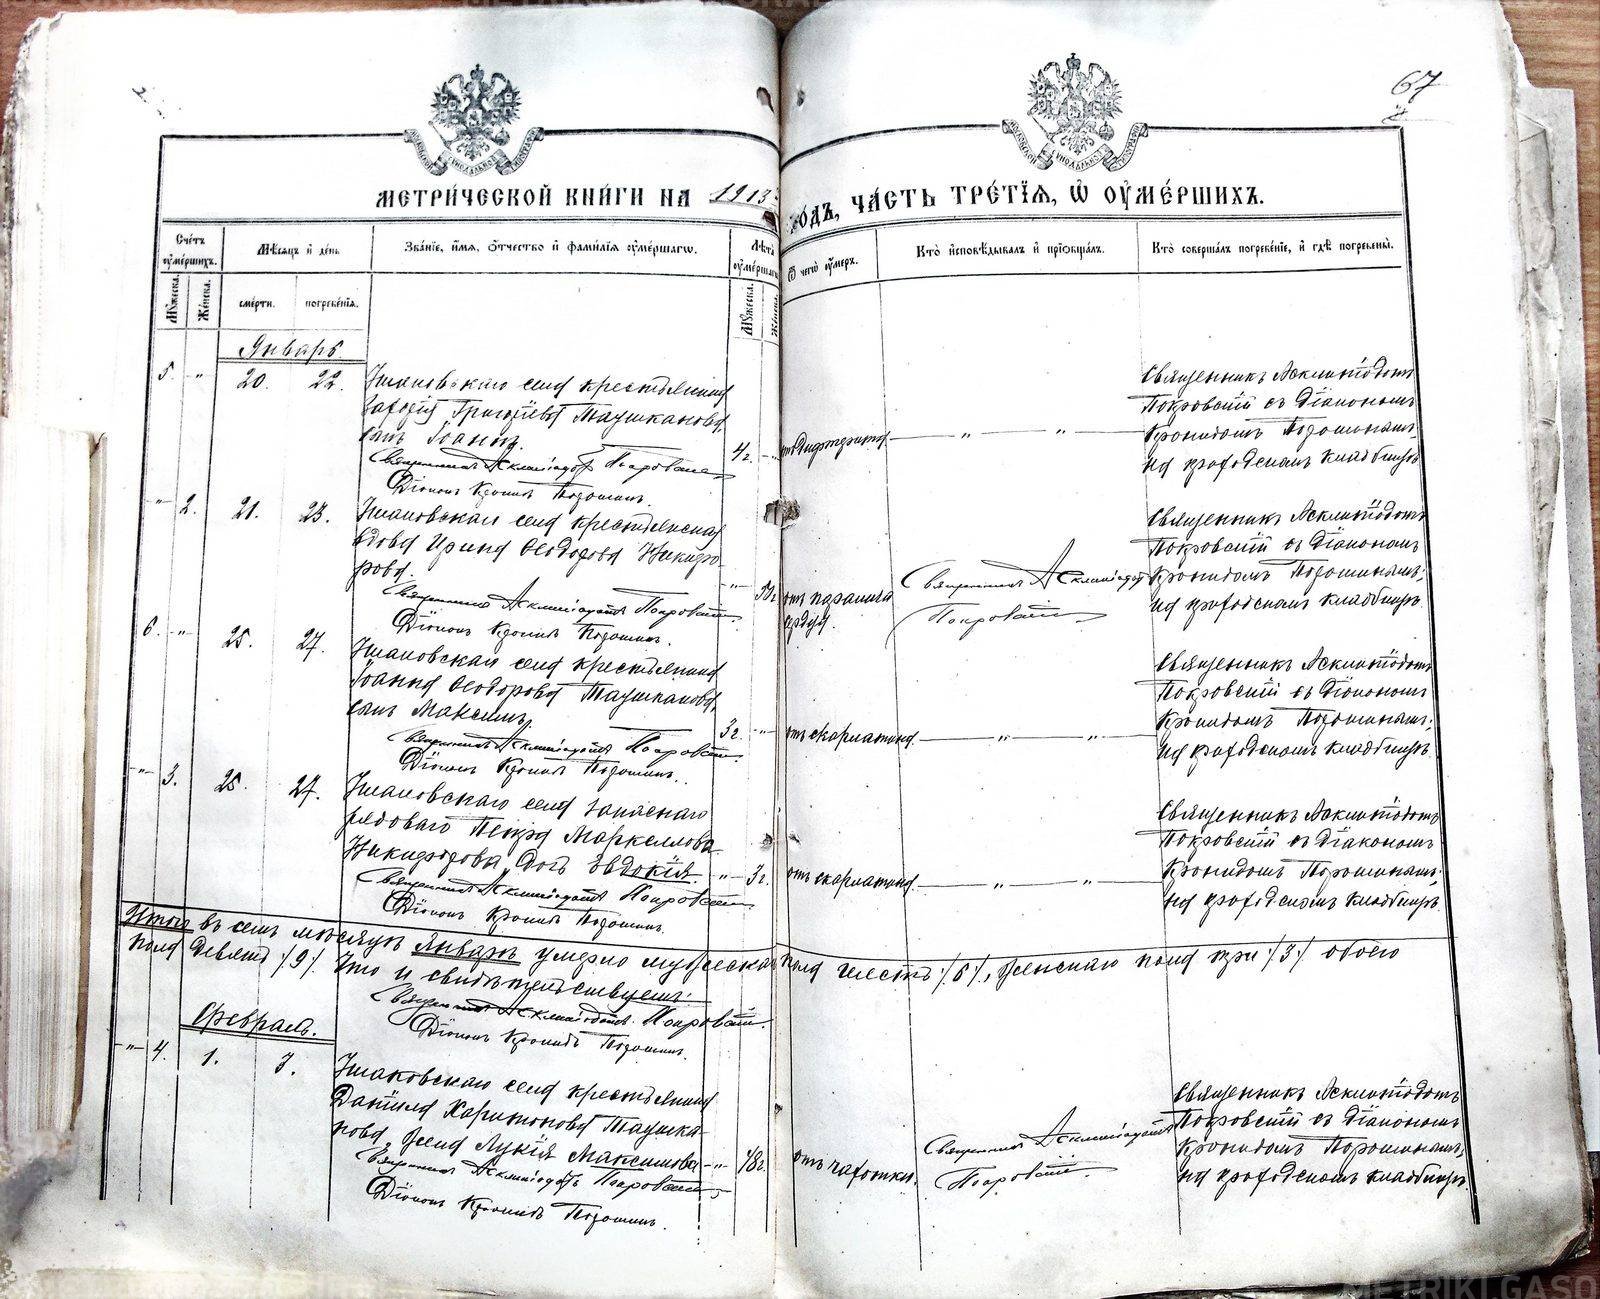 67
МЕТРИ́ЧЕСКОЙ КНИ́ГИ НА 1913 ГОДЪ, ЧА́СТЬ ТРЕ́ТЇѦ, Ѡ҆ ОУ҆МЕ́РШИХЪ.
Сче́тъ оу҆ме́ршихъ.
Мꙋ́жеска.
Же́нска.
Мѣ́сѧцъ и҆ де́нь
сме́рти.
погребе́нїѧ.
Зва́нїе, и҆́мѧ, ѻ҆́тчество и҆ фами́лїѧ оу҆ме́ршагѡ.
Лѣ́та оу҆ме́ршагѡ
Мꙋ́жеска.
Же́нска.
Ѿ чегѡ̀ оу҆́меръ.
Кто̀ и҆сповѣ́дывалъ и҆ прїѡбща́лъ.
Кто̀ соверша́лъ погребе́нїе, и҆ гдѣ̀ погребены̀.
Январь
5. " 20. 22.
села крестьянина
Григорїева Таушканова
сынъ Іоаннъ.
4 г. "
" "
Священникъ Асклипїодотъ Покровскій
Дїаконъ Кронидъ Порошинъ.
Священникъ Асклипїодотъ
Покровскій съ Дїакономъ
Кронидомъ Порошинымъ,
на приходскомъ кладбищѣ.
" 2. 21. 23.
села крестьянская
вдова Ирина Ѳеодорова Никифо-
рова.
" отъ паралича
сердца.
Священникъ Асклипїодотъ Покровскій
Дїаконъ Кронидъ Порошинъ.
Священникъ Асклипїодотъ
Покровскій
Священникъ Асклипїодотъ
Покровскій съ Дїакономъ
Кронидомъ Порошинымъ;
на приходскомъ кладбищѣ.
6. " 25. 27.
села крестьянина
Іоанна Ѳеодорова Таушканова,
сынъ Максимъ,
3 г. " отъ скарлатины.
" "
Священникъ Асклипїодотъ Покровскій
Дїаконъ Кронидъ Порошинъ.
Священникъ Асклипїодотъ
Покровскій съ Дїакономъ
Кронидомъ Порошинымъ;
на приходскомъ кладбищѣ.
" 3. 25. 27.
села запаснаго
рядоваго Петра Маркеллова
Никифорова, дочь Евдокія.
" 3 г. отъ скарлатины.
" "
Священникъ Асклипїодотъ Покровскій
Дїаконъ Кронидъ Порошинъ.
Священникъ Асклипїодотъ
Покровскій съ Дїакономъ
Кронидомъ Порошинымъ;
на приходскомъ кладбищѣ.
Итого въ семъ мѣсяцѣ Январѣ умерло мужеска пола шесть /6/, женскаго пола три /3/ обоего
пола девять /9/. Что и свидѣтельствуемъ:
Священникъ Асклипїодотъ Покровскій.
Дїаконъ Кронидъ Порошинъ.
Февраль.
" 4. 1. 3.
села крестьянина
Данїила Харитонова Таушка-
нова, жена Лукія Максимова
" 48 г. отъ чахотки.
Священникъ Асклипїодотъ Покровскій
Дїаконъ Кронидъ Порошинъ.
Священникъ Асклипїодотъ
Покровскій
Священникъ Асклипїодотъ
Покровскій съ Дїакономъ
Кронидомъ Порошинымъ;
на приходскомъ кладбищѣ.
METRIKI.GASO